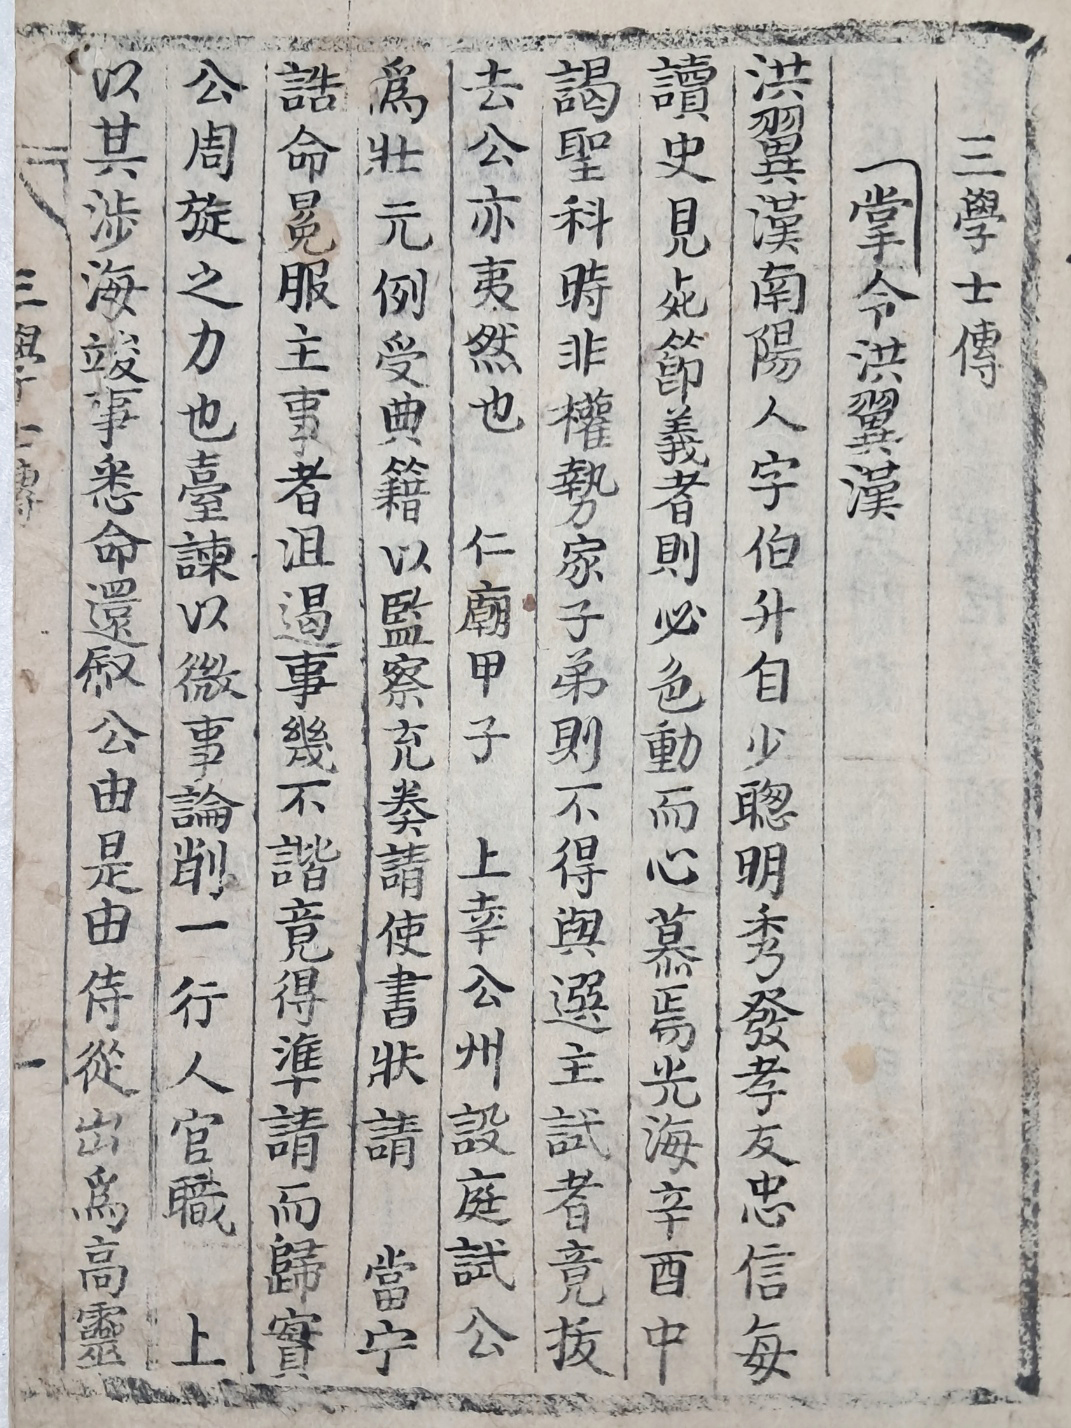 三學士傳
掌令洪翼漢
洪翼漢南陽人字伯升自少聰明秀發孝友忠信每
讀史見死節義者則必色動而心慕焉光海辛酉中
謁聖科時非權勢家子弟則不得與選主試者竟拔
去公亦夷然也　仁廟甲子　上幸公州設庭試公
爲壯元例受典籍以監察充奏請使書狀請　當宁
誥命冕服主事者沮遏事幾不諧竟得準請而歸實
公周旋之力也臺諫以微事論削一行人官職　上
以其涉海竣事悉命還敍公由是由侍從出爲高靈
三學士傳　一